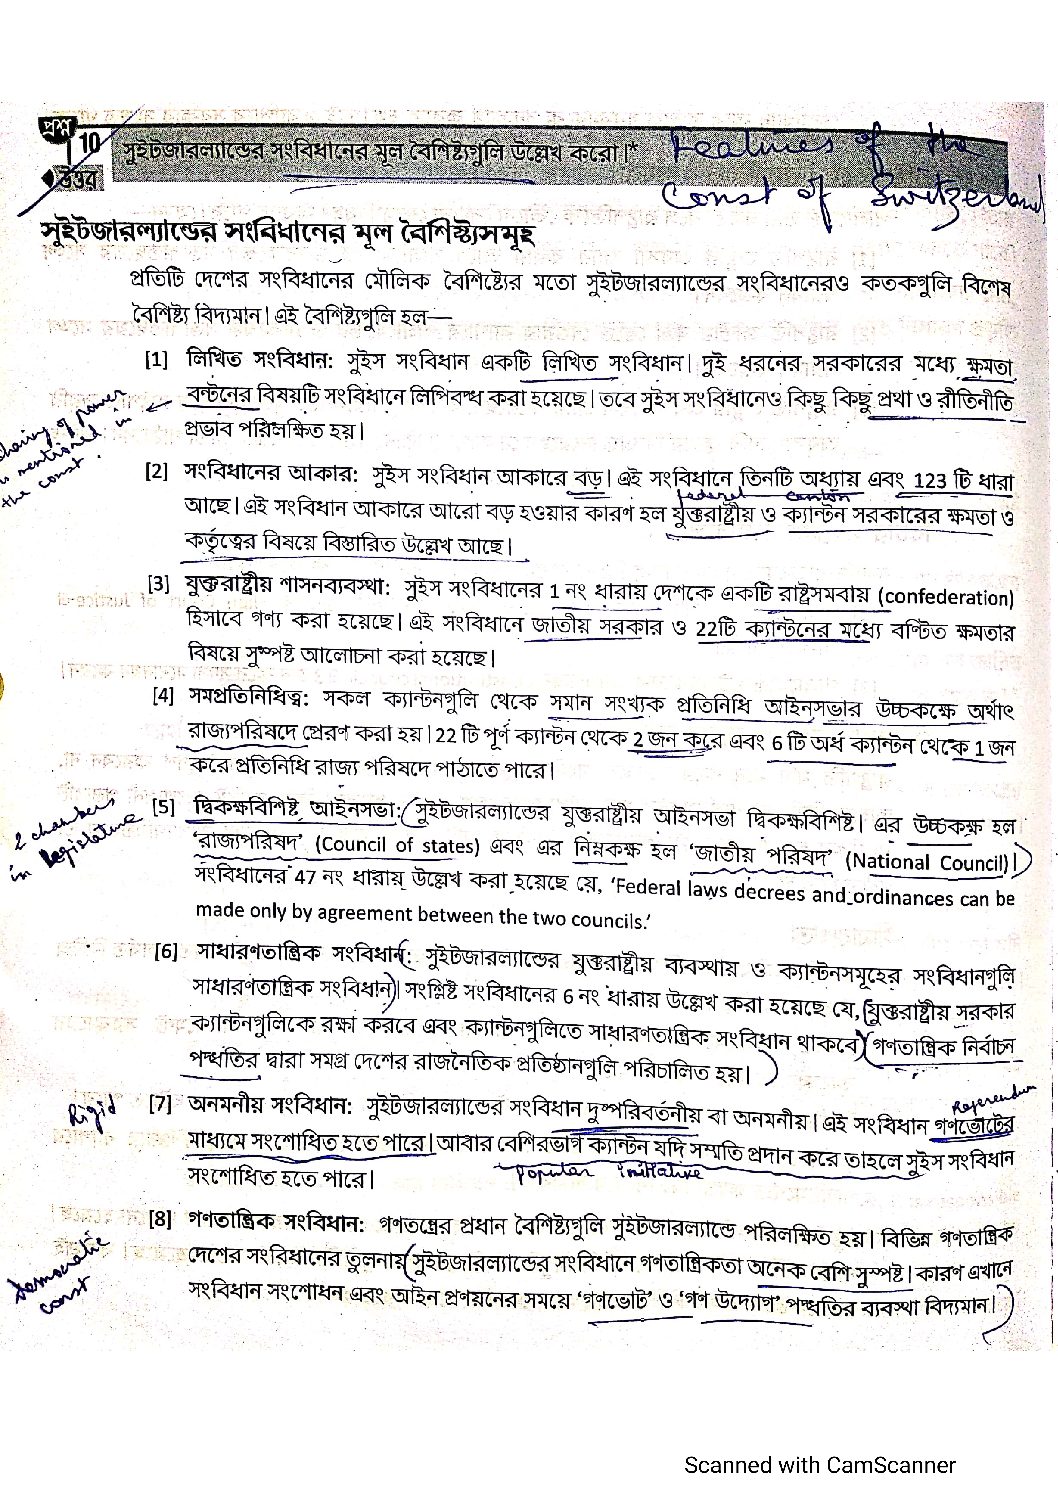 প্রশ্ন
10 সুইটজারল্যান্ডের সংবিধানের মূল বৈশিষ্ট্যগুলি উল্লেখ করো।* Features of the
উত্তর
Const of Switzerland
সুইটজারল্যান্ডের সংবিধানের মূল বৈশিষ্ট্যসমূহ
প্রতিটি দেশের সংবিধানের মৌলিক বৈশিষ্ট্যের মতো সুইটজারল্যান্ডের সংবিধানেরও কতকগুলি বিশেষ
বৈশিষ্ট্য বিদ্যমান। এই বৈশিষ্ট্যগুলি হল—
[1] লিখিত সংবিধান: সুইস সংবিধান একটি লিখিত সংবিধান। দুই ধরনের সরকারের মধ্যে ক্ষমতা
বণ্টনের বিষয়টি সংবিধানে লিপিবদ্ধ করা হয়েছে। তবে সুইস সংবিধানেও কিছু কিছু প্রথা ও রীতিনীতি
প্রভাব পরিলক্ষিত হয়।
sharing of power
is mentioned in
the const.
[2] সংবিধানের আকার: সুইস সংবিধান আকারে বড়। এই সংবিধানে তিনটি অধ্যায় এবং 123 টি ধারা
federal canton
আছে। এই সংবিধান আকারে আরো বড় হওয়ার কারণ হল যুক্তরাষ্ট্রীয় ও ক্যান্টন সরকারের ক্ষমতা ও
কর্তৃত্বের বিষয়ে বিস্তারিত উল্লেখ আছে।
[3] যুক্তরাষ্ট্রীয় শাসনব্যবস্থা: সুইস সংবিধানের 1 নং ধারায় দেশকে একটি রাষ্ট্রসমবায় (confederation)
হিসাবে গণ্য করা হয়েছে। এই সংবিধানে জাতীয় সরকার ও 22টি ক্যান্টনের মধ্যে বণ্টিত ক্ষমতার
বিষয়ে সুস্পষ্ট আলোচনা করা হয়েছে।
[4] সমপ্রতিনিধিত্ব: সকল ক্যান্টনগুলি থেকে সমান সংখ্যক প্রতিনিধি আইনসভার উচ্চকক্ষে অর্থাৎ
রাজ্যপরিষদে প্রেরণ করা হয়। 22 টি পূর্ণ ক্যান্টন থেকে 2 জন করে এবং 6 টি অর্ধ ক্যান্টন থেকে 1 জন
করে প্রতিনিধি রাজ্য পরিষদে পাঠাতে পারে।
2 chambers
in legislature
[5] দ্বিকক্ষবিশিষ্ট আইনসভা: সুইটজারল্যান্ডের যুক্তরাষ্ট্রীয় আইনসভা দ্বিকক্ষবিশিষ্ট। এর উচ্চকক্ষ হল
‘রাজ্যপরিষদ’ (Council of states) এবং এর নিম্নকক্ষ হল ‘জাতীয় পরিষদ’ (National Council)।
সংবিধানের 47 নং ধারায় উল্লেখ করা হয়েছে যে, ‘Federal laws decrees and ordinances can be
made only by agreement between the two councils.’
[6] সাধারণতান্ত্রিক সংবিধান: সুইটজারল্যান্ডের যুক্তরাষ্ট্রীয় ব্যবস্থায় ও ক্যান্টনসমূহের সংবিধানগুলি
সাধারণতান্ত্রিক সংবিধান। সংশ্লিষ্ট সংবিধানের 6 নং ধারায় উল্লেখ করা হয়েছে যে, যুক্তরাষ্ট্রীয় সরকার
ক্যান্টনগুলিকে রক্ষা করবে এবং ক্যান্টনগুলিতে সাধারণতান্ত্রিক সংবিধান থাকবে। গণতান্ত্রিক নির্বাচন
পদ্ধতির দ্বারা সমগ্র দেশের রাজনৈতিক প্রতিষ্ঠানগুলি পরিচালিত হয়।
Rigid
Referendum
[7] অনমনীয় সংবিধান: সুইটজারল্যান্ডের সংবিধান দুষ্পরিবর্তনীয় বা অনমনীয়। এই সংবিধান গণভোটের
মাধ্যমে সংশোধিত হতে পারে। আবার বেশিরভাগ ক্যান্টন যদি সম্মতি প্রদান করে তাহলে সুইস সংবিধান
popular initiative
সংশোধিত হতে পারে।
[8] গণতান্ত্রিক সংবিধান: গণতন্ত্রের প্রধান বৈশিষ্ট্যগুলি সুইটজারল্যান্ডে পরিলক্ষিত হয়। বিভিন্ন গণতান্ত্রিক
দেশের সংবিধানের তুলনায় সুইটজারল্যান্ডের সংবিধানে গণতান্ত্রিকতা অনেক বেশি সুস্পষ্ট। কারণ এখানে
সংবিধান সংশোধন এবং আইন প্রণয়নের সময়ে ‘গণভোট’ ও ‘গণ উদ্যোগ’ পদ্ধতির ব্যবস্থা বিদ্যমান।
Democratic
const
Scanned with CamScanner